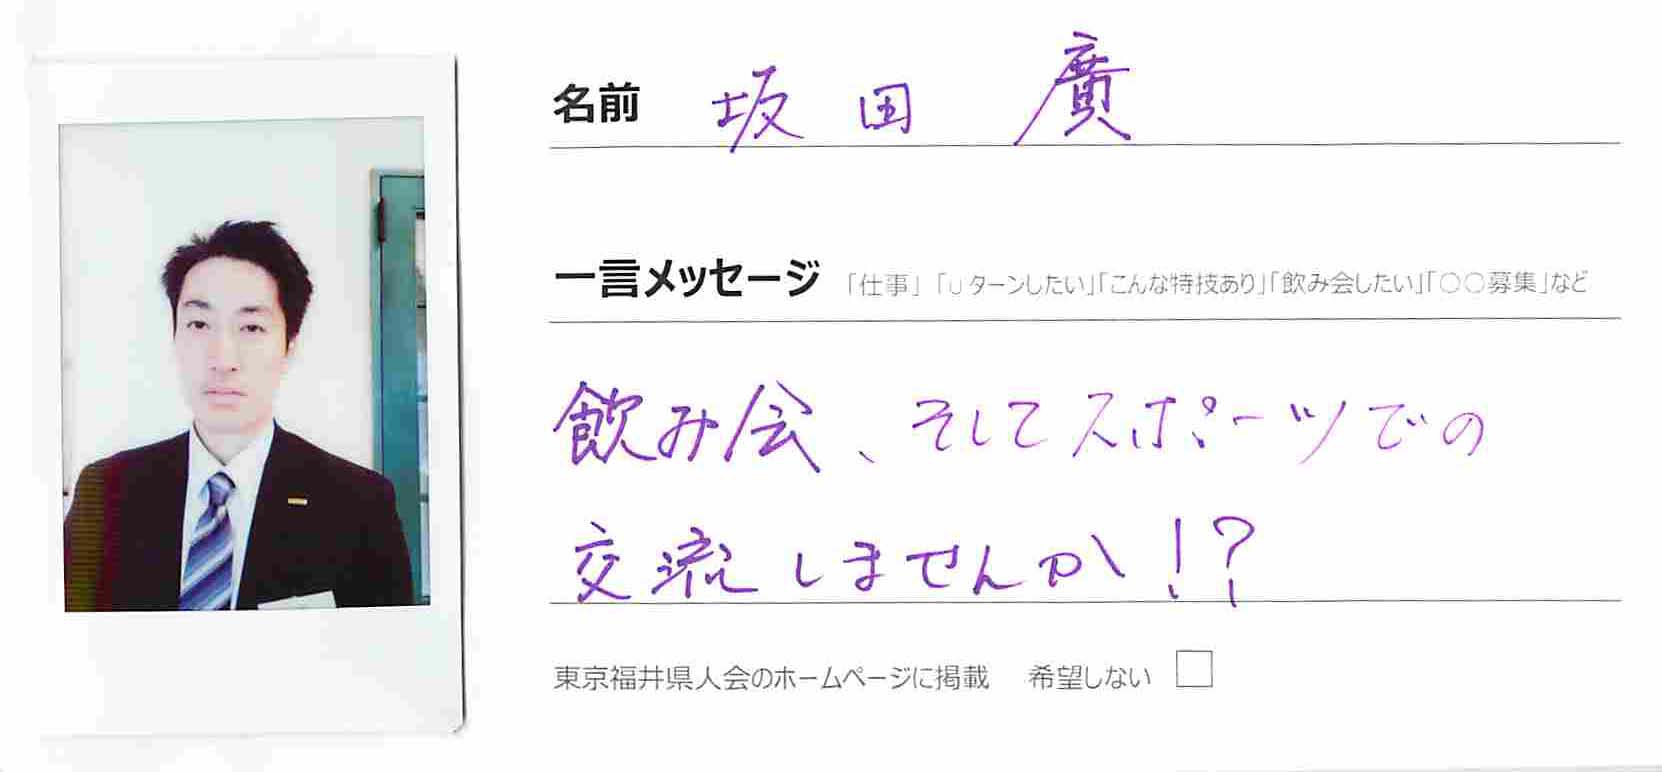 名前 坂田 廣
一言メッセージ 「仕事」「Uターンしたい」「こんな特技あり」「飲み会したい」「○○募集」など
飲み会、そしてスポーツでの
交流しませんか!?
東京福井県人会のホームページに掲載 希望しない □